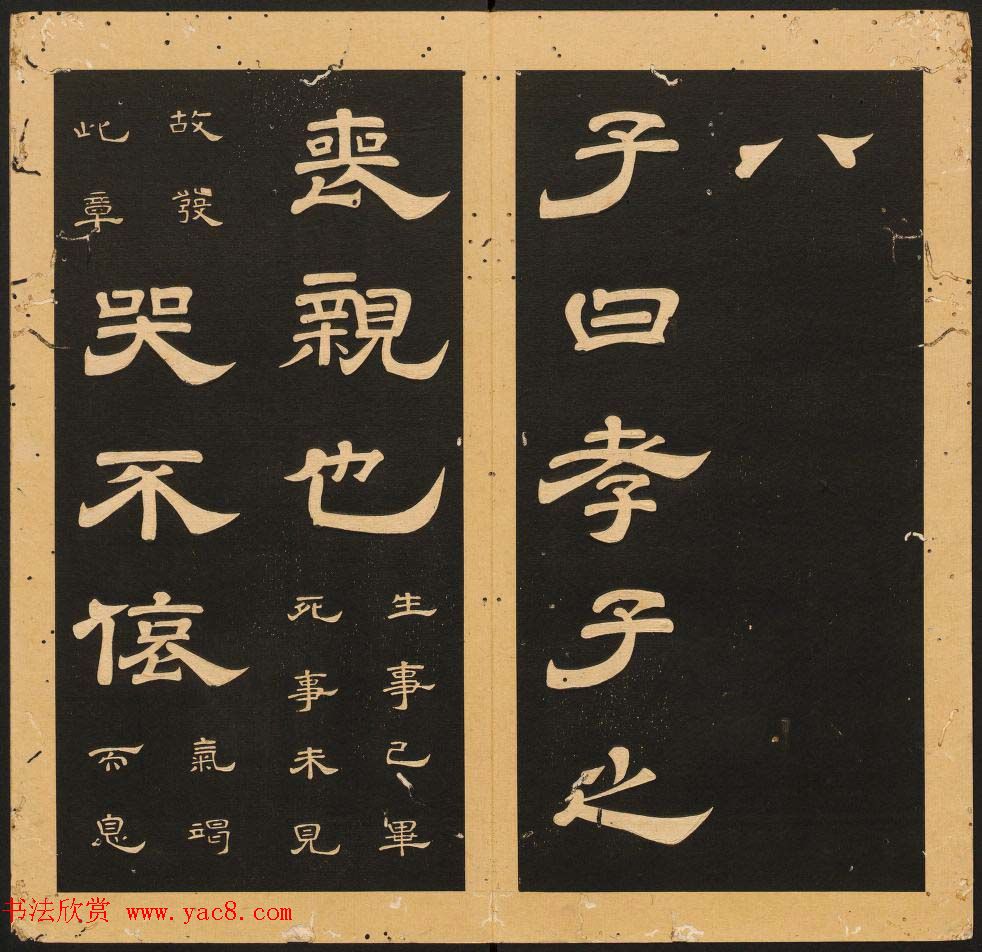 八
子曰孝子之
喪親也
生事已畢
死事未見
故發
此章
哭不偯
氣竭
而息
书法欣赏 www.yac8.com